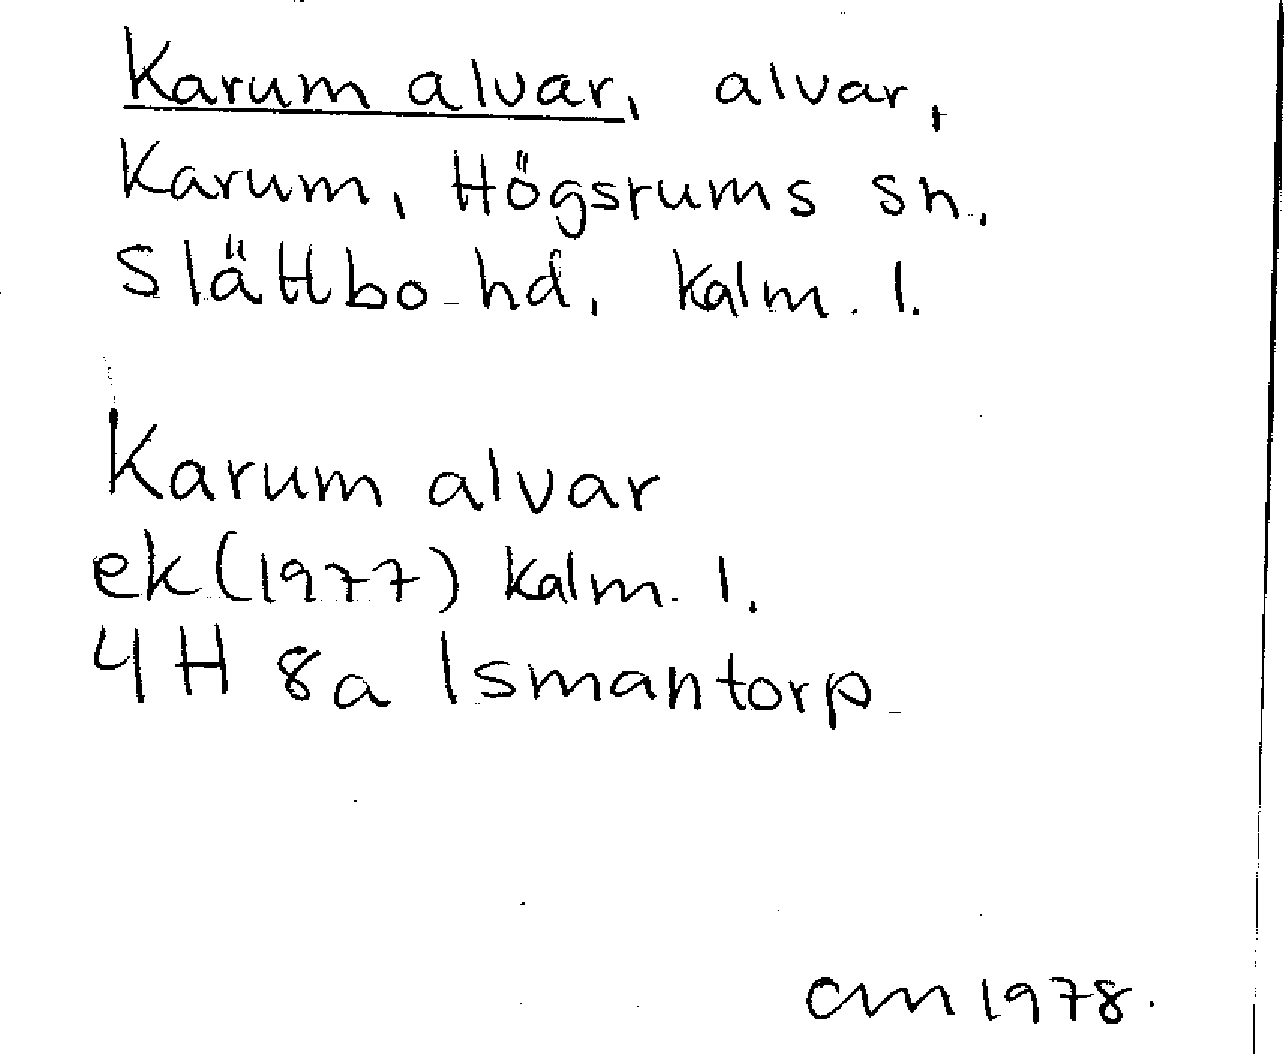 Karum alvar, alvar,
Karum, Högsrums sn.,
Slättbo hd, Kalm. l.
Karum alvar
ek (1977) Kalm. l.
4H 8a Ismantorp
CM 1978.